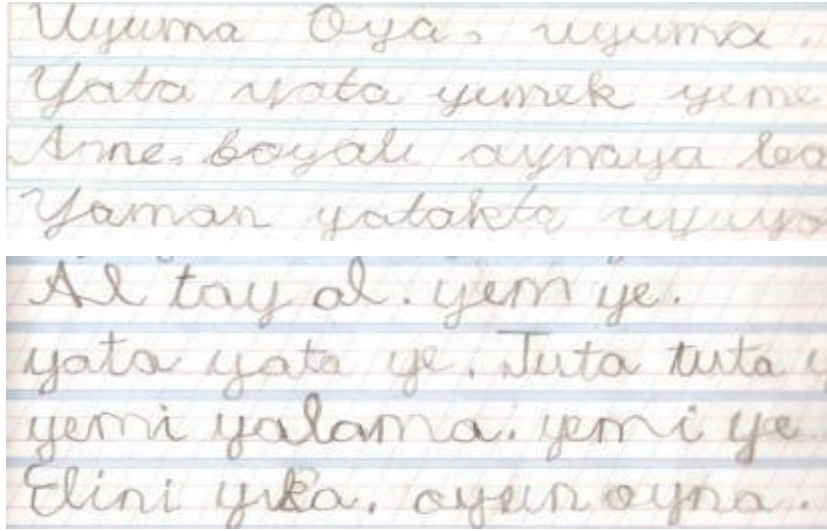 Uyuma Oya, uyuma.
Yata yata yemek yeme
Anne, boyalı aynaya ba
Yaman yatakta uyuyo
Al tay al. yem ye.
yata yata ye. Tuta tuta y
yemi yalama. yemi ye
Elini yıka. oyun oyna.